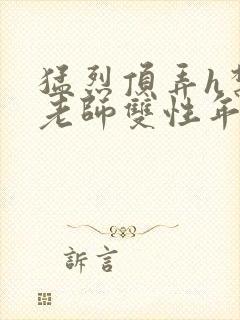 猛烈頂弄h
老師雙性年
訴言